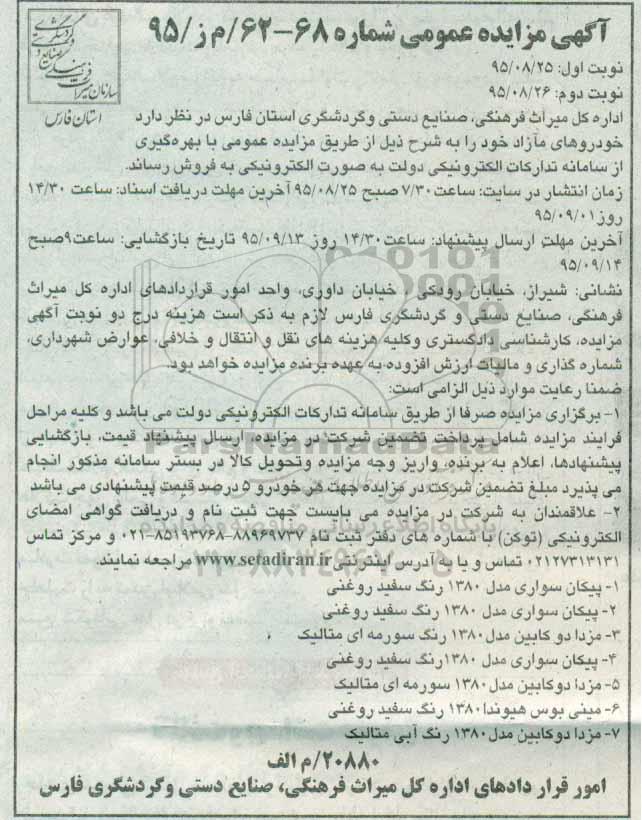 آگهی مزایده عمومی شماره ۶۸-۶۲/م ز/۹۵
نوبت اول: ۹۵/۰۸/۲۵
نوبت دوم: ۹۵/۰۸/۲۶
استان فارس
اداره کل میراث فرهنگی، صنایع دستی وگردشگری استان فارس در نظر دارد
خودروهای مازاد خود را به شرح ذیل از طریق مزایده عمومی با بهره‌گیری
از سامانه تدارکات الکترونیکی دولت به صورت الکترونیکی به فروش رساند.
زمان انتشار در سایت: ساعت ۷/۳۰ صبح ۹۵/۰۸/۲۵ آخرین مهلت دریافت اسناد: ساعت ۱۴/۳۰
روز ۹۵/۰۹/۰۱
آخرین مهلت ارسال پیشنهاد: ساعت ۱۴/۳۰ روز ۹۵/۰۹/۱۳ تاریخ بازگشایی: ساعت ۹صبح
۹۵/۰۹/۱۴
نشانی: شیراز، خیابان رودکی ، خیابان داوری، واحد امور قراردادهای اداره کل میراث
فرهنگی، صنایع دستی و گردشگری فارس لازم به ذکر است هزینه درج دو نوبت آگهی
مزایده، کارشناسی دادگستری وکلیه هزینه های نقل و انتقال و خلافی، عوارض شهرداری،
شماره گذاری و مالیات ارزش افزوده به عهده برنده مزایده خواهد بود.
ضمنا رعایت موارد ذیل الزامی است:
۱- برگزاری مزایده صرفا از طریق سامانه تدارکات الکترونیکی دولت می باشد و کلیه مراحل
فرایند مزایده شامل پرداخت تضمین شرکت در مزایده، ارسال پیشنهاد قیمت، بازگشایی
پیشنهادها، اعلام به برنده، واریز وجه مزایده وتحویل کالا در بستر سامانه مذکور انجام
می پذیرد مبلغ تضمین شرکت در مزایده جهت هر خودرو ۵ درصد قیمت پیشنهادی می باشد
۲- علاقمندان به شرکت در مزایده می بایست جهت ثبت نام و دریافت گواهی امضای
الکترونیکی (توکن) با شماره های دفتر ثبت نام ۸۸۹۶۹۷۳۷-۸۵۱۹۳۷۶۸-۰۲۱ و مرکز تماس
۰۲۱۲۷۳۱۳۱۳۱ تماس و یا به آدرس اینترنتی www.sefadiran.ir مراجعه نمایند.
۱- پیکان سواری مدل ۱۳۸۰ رنگ سفید روغنی
۲- پیکان سواری مدل ۱۳۸۰ رنگ سفید روغنی
۳- مزدا دو کابین مدل ۱۳۸۰ رنگ سورمه ای متالیک
۴- پیکان سواری مدل ۱۳۸۰ رنگ سفید روغنی
۵- مزدا دوکابین مدل ۱۳۸۰ سورمه ای متالیک
۶- مینی بوس هیوندا ۱۳۸۰ رنگ سفید روغنی
۷- مزدا دوکابین مدل ۱۳۸۰ رنگ آبی متالیک
۲۰۸۸۰/م الف
امور قرار دادهای اداره کل میراث فرهنگی، صنایع دستی وگردشگری فارس
ParsNamadData